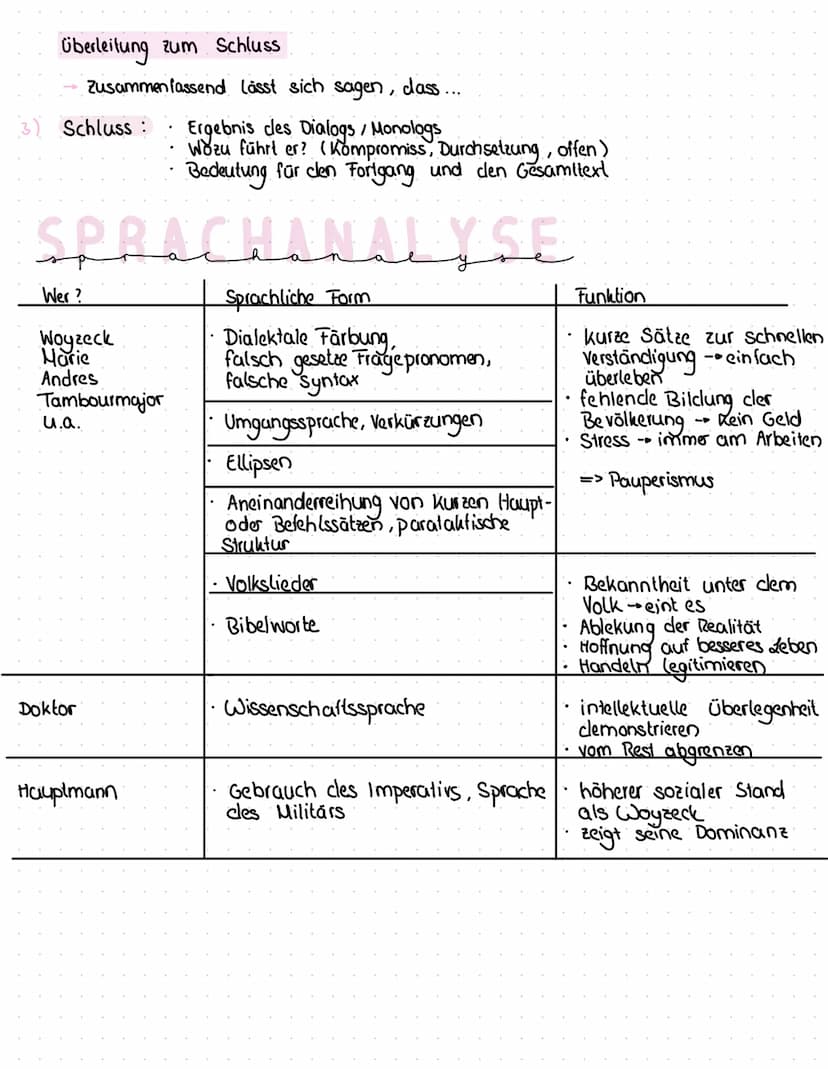 Überleitung zum Schluss
→ Zusammenfassend lässt sich sagen, dass ...
3) Schluss: · Ergebnis des Dialogs / Monologs
· Wozu führt er? (Kompromiss, Durchsetzung, offen)
· Bedeutung für den Fortgang und den Gesamttext
SPRACHANALYSE
sprachanalyse
Wer? Sprachliche Form Funktion
Woyzeck
Marie
Andres
Tambourmajor
u.a.
· Dialektale Färbung,
falsch gesetze Fragepronomen,
falsche Syntax
· Umgangssprache, Verkürzungen
· Ellipsen
· Aneinanderreihung von kurzen Haupt-
oder Befehlssätzen, parataktische
Struktur
· kurze Sätze zur schnellen
Verständigung → einfach
überleben
· fehlende Bildung der
Bevölkerung → kein Geld
· Stress → immer am Arbeiten
=> Pauperismus
· Volkslieder
· Bibelworte
· Bekanntheit unter dem
Volk → eint es
· Ablekung der Realität
· Hoffnung auf besseres Leben
· Handeln legitimieren
Doktor
· Wissenschaftssprache
· intellektuelle Überlegenheit
demonstrieren
· vom Rest abgrenzen
Hauptmann
· Gebrauch des Imperativs, Sprache
des Militärs
· höherer sozialer Stand
als Woyzeck
· zeigt seine Dominanz